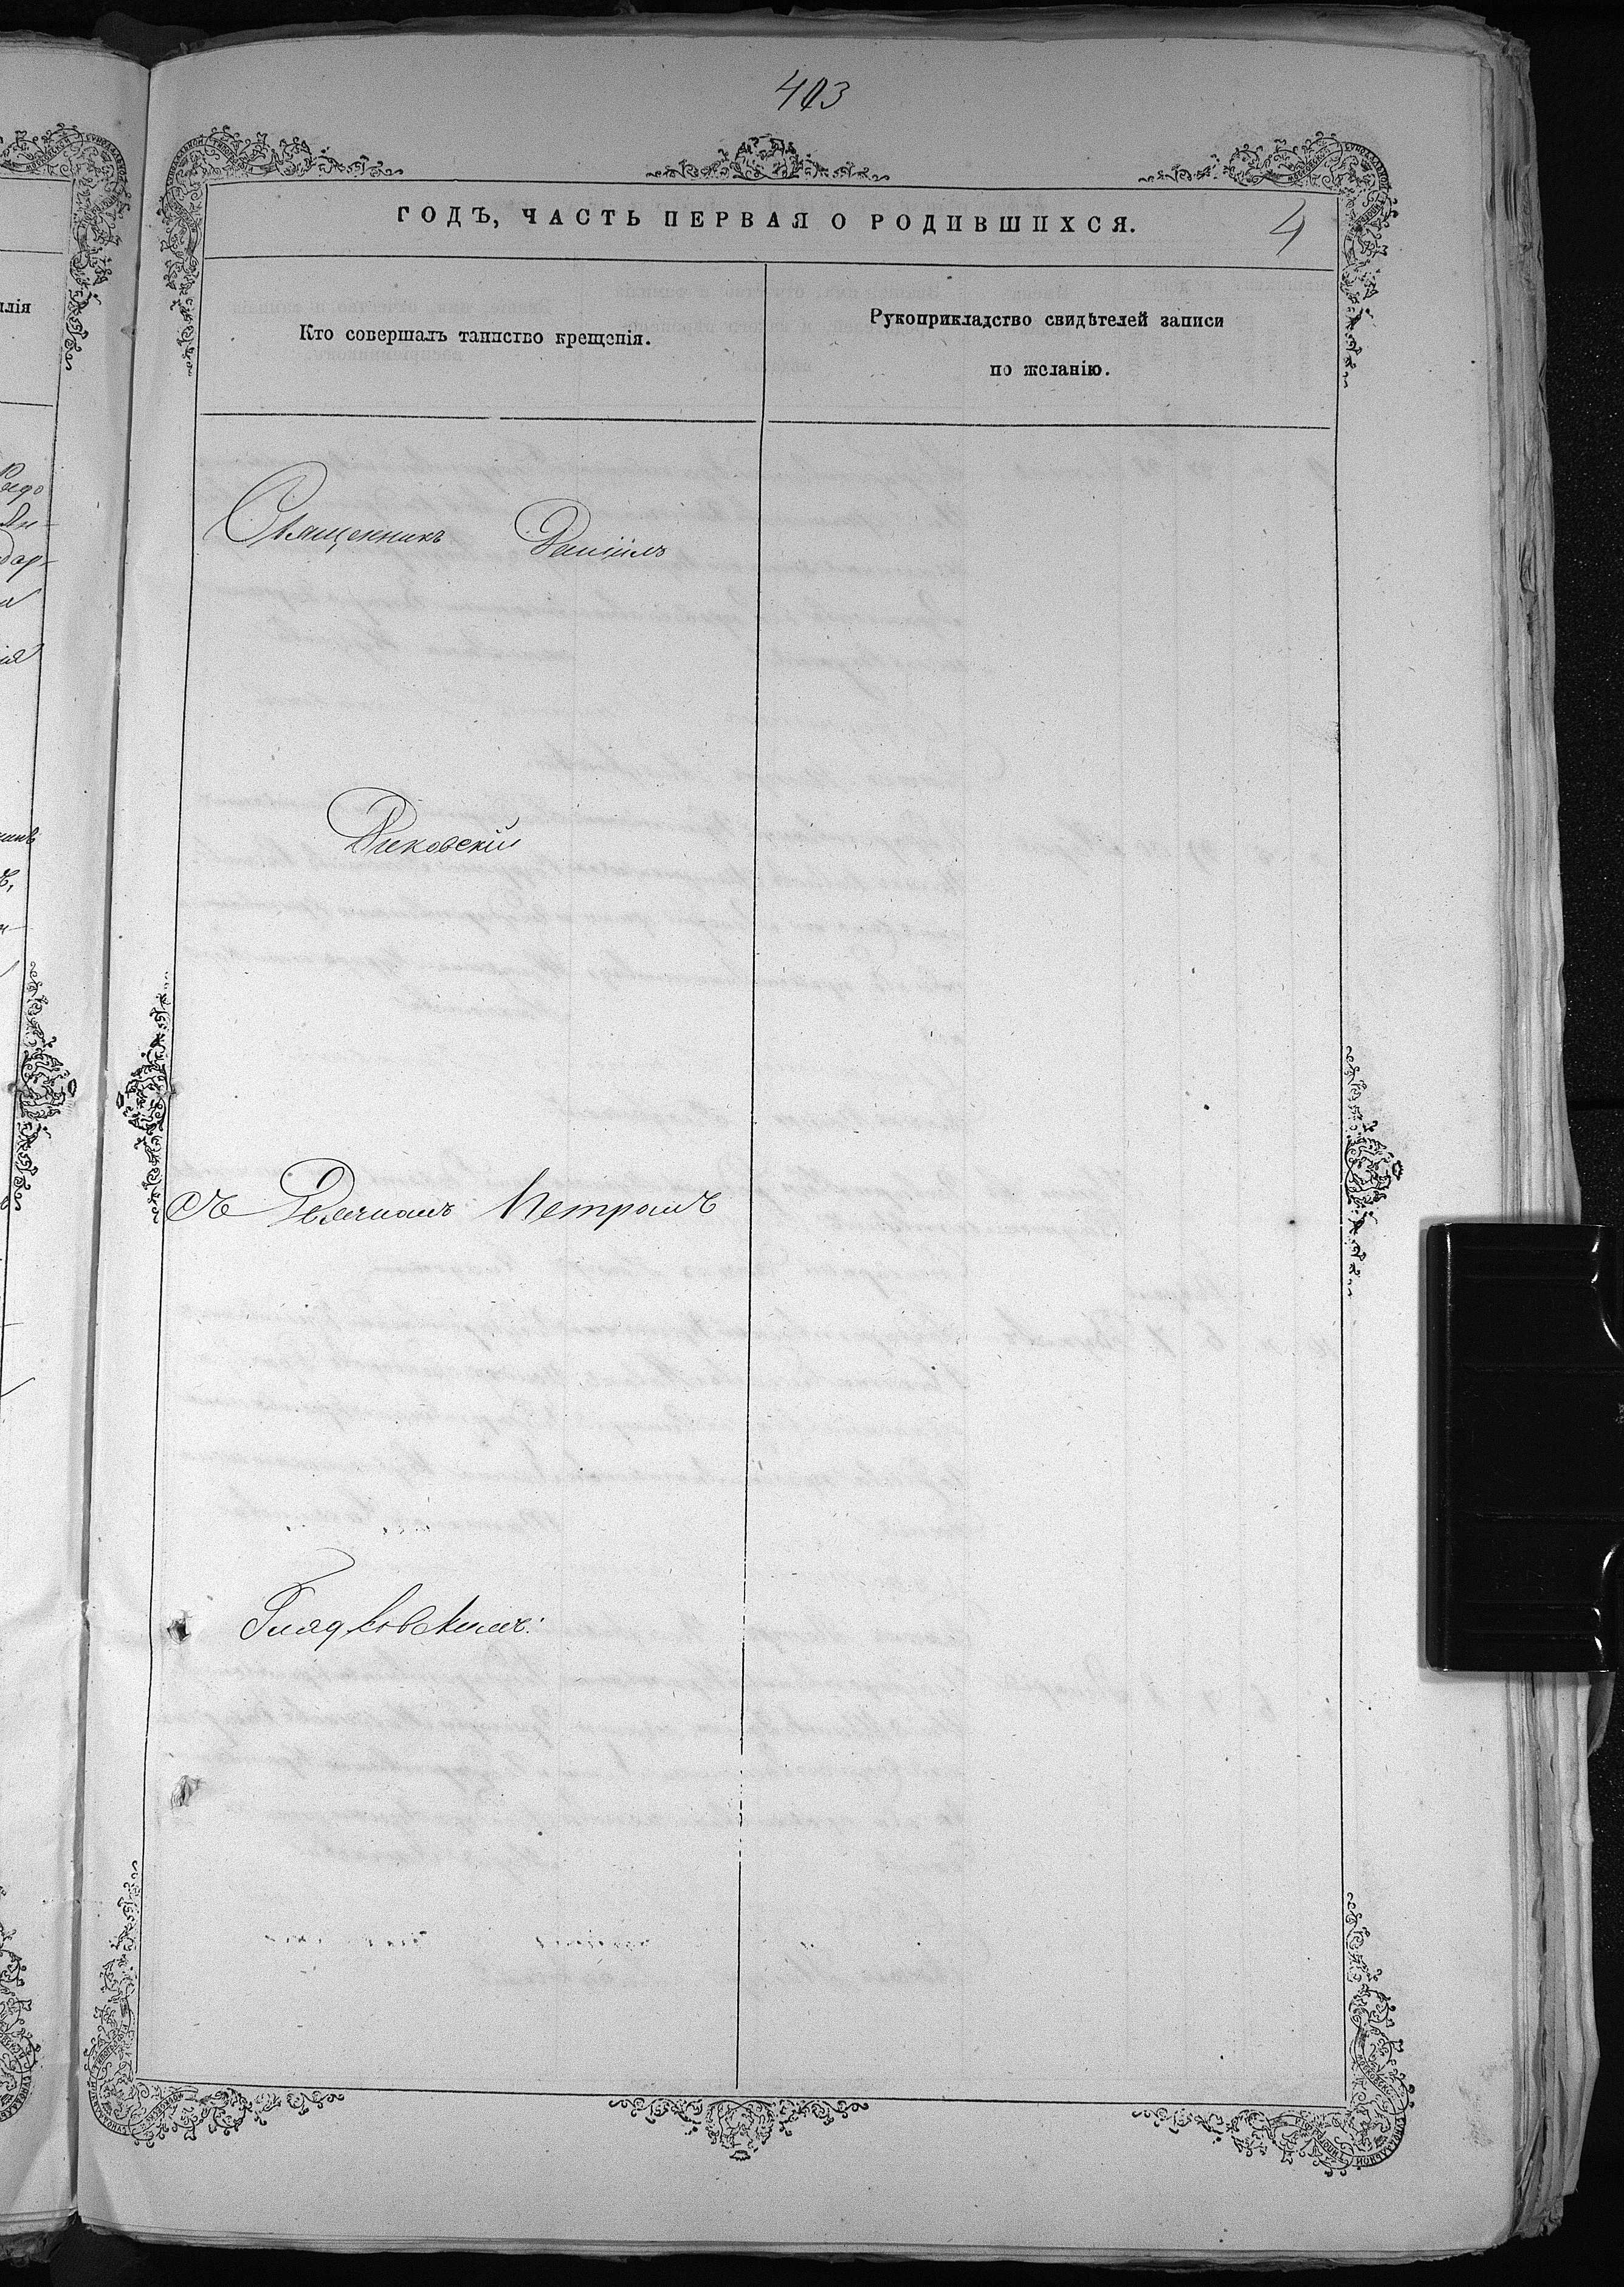 403
ГОДЪ, ЧАСТЬ ПЕРВАЯ О РОДИВШИХСЯ.
4
Кто совершалъ таинство крещенія.
Рукоприкладство свидѣтелей записи
по желанію.
Священникъ Даніилъ
Диковскій
съ Дьячкомъ Петромъ
Гладковскимъ: